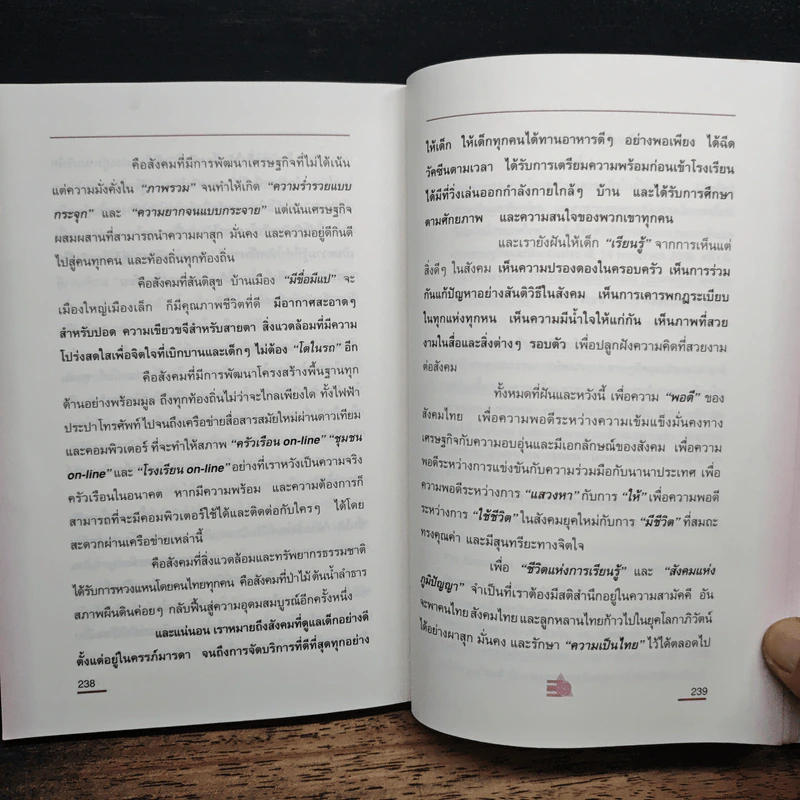 คือสังคมที่มีการพัฒนาเศรษฐกิจที่ไม่ได้เน้น
แต่ความมั่งคั่งใน “ภาพรวม” จนทำให้เกิด “ความร่ำรวยแบบ
กระจุก” และ “ความยากจนแบบกระจาย” แต่เน้นเศรษฐกิจ
ผสมผสานที่สามารถนำความผาสุก มั่นคง และความอยู่ดีกินดี
ไปสู่คนทุกคน และท้องถิ่นทุกท้องถิ่น
คือสังคมที่สันติสุข บ้านเมือง “มีขื่อมีแป” จะ
เมืองใหญ่เมืองเล็ก ก็มีคุณภาพชีวิตที่ดี มีอากาศสะอาดๆ
สำหรับปอด ความเขียวขจีสำหรับสายตา สิ่งแวดล้อมที่มีความ
โปร่งสดใสเพื่อจิตใจที่เบิกบานและเด็กๆ ไม่ต้อง “โตในรถ” อีก
คือสังคมที่มีการพัฒนาโครงสร้างพื้นฐานทุก
ด้านอย่างพร้อมมูล ถึงทุกท้องถิ่นไม่ว่าจะไกลเพียงใด ทั้งไฟฟ้า
ประปาโทรศัพท์ไปจนถึงเครือข่ายสื่อสารสมัยใหม่ผ่านดาวเทียม
และคอมพิวเตอร์ ที่จะทำให้สภาพ “ครัวเรือน on-line” “ชุมชน
on-line” และ “โรงเรียน on-line” อย่างที่เราหวังเป็นความจริง
ครัวเรือนในอนาคต หากมีความพร้อม และความต้องการก็
สามารถที่จะมีคอมพิวเตอร์ใช้ได้และติดต่อกับใครๆ ได้โดย
สะดวกผ่านเครือข่ายเหล่านี้
คือสังคมที่สิ่งแวดล้อมและทรัพยากรธรรมชาติ
ได้รับการหวงแหนโดยคนไทยทุกคน คือสังคมที่ป่าไม้ต้นน้ำลำธาร
สภาพผืนดินค่อยๆ กลับฟื้นสู่ความอุดมสมบูรณ์อีกครั้งหนึ่ง
และแน่นอน เราหมายถึงสังคมที่ดูแลเด็กอย่างดี
ตั้งแต่อยู่ในครรภ์มารดา จนถึงการจัดบริการที่ดีที่สุดทุกอย่าง
238
ให้เด็ก ให้เด็กทุกคนได้ทานอาหารดีๆ อย่างพอเพียง ได้ฉีด
วัคซีนตามเวลา ได้รับการเตรียมความพร้อมก่อนเข้าโรงเรียน
ได้มีที่วิ่งเล่นออกกำลังกายใกล้ๆ บ้าน และได้รับการศึกษา
ตามศักยภาพ และความสนใจของพวกเขาทุกคน
และเรายังฝันให้เด็ก “เรียนรู้” จากการเห็นแต่
สิ่งดีๆ ในสังคม เห็นความปรองดองในครอบครัว เห็นการร่วม
กันแก้ปัญหาอย่างสันติวิธีในสังคม เห็นการเคารพกฎระเบียบ
ในทุกแห่งทุกหน เห็นความมีน้ำใจให้แก่กัน เห็นภาพที่สวย
งามในสื่อและสิ่งต่างๆ รอบตัว เพื่อปลูกฝังความคิดที่สวยงาม
ต่อสังคม
ทั้งหมดที่ฝันและหวังนี้ เพื่อความ “พอดี” ของ
สังคมไทย เพื่อความพอดีระหว่างความเข้มแข็งมั่นคงทาง
เศรษฐกิจกับความอบอุ่นและมีเอกลักษณ์ของสังคม เพื่อความ
พอดีระหว่างการแข่งขันกับความร่วมมือกับนานาประเทศ เพื่อ
ความพอดีระหว่างการ “แสวงหา” กับการ “ให้” เพื่อความพอดี
ระหว่างการ “ใช้ชีวิต” ในสังคมยุคใหม่กับการ “มีชีวิต” ที่สมถะ
ทรงคุณค่า และมีสุนทรียะทางจิตใจ
เพื่อ “ชีวิตแห่งการเรียนรู้” และ “สังคมแห่ง
ภูมิปัญญา” จำเป็นที่เราต้องมีสติสำนึกอยู่ในความสามัคคี อัน
จะพาคนไทย สังคมไทย และลูกหลานไทยก้าวไปในยุคโลกาภิวัตน์
ได้อย่างผาสุก มั่นคง และรักษา “ความเป็นไทย” ไว้ได้ตลอดไป
239